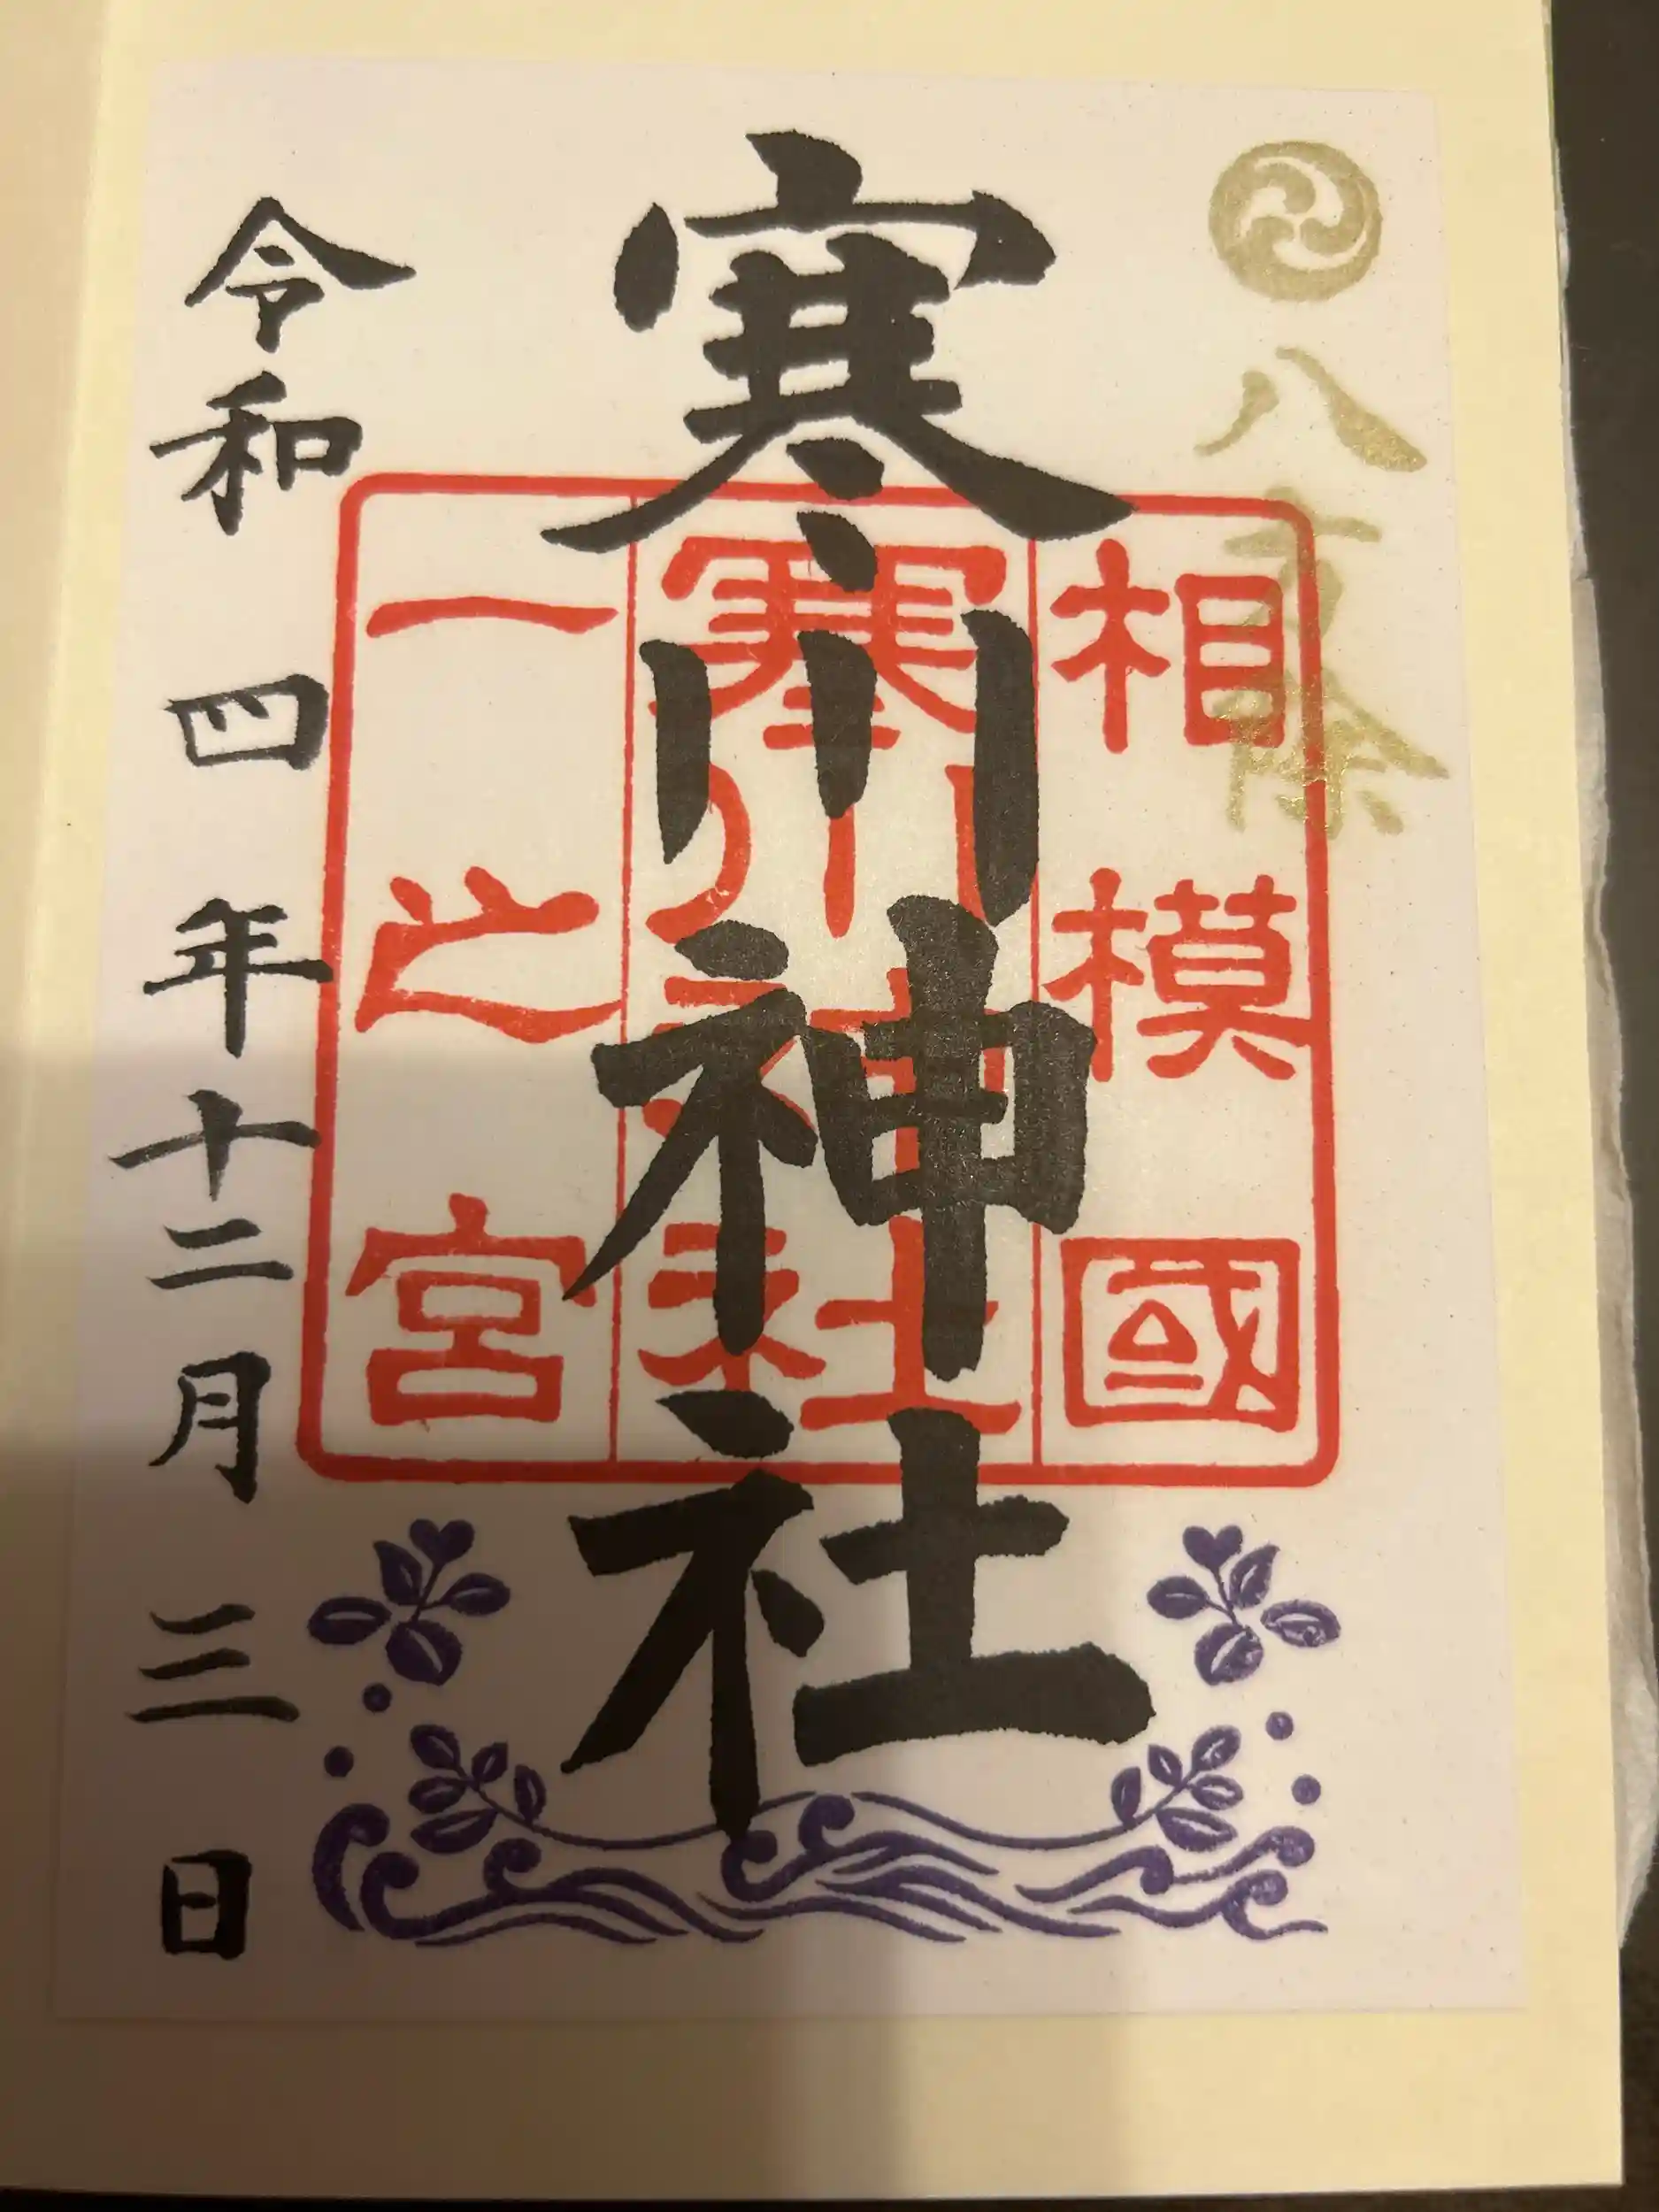 八方除
寒川神社
相模國
寒川神社
一之宮
令和四年十二月三日